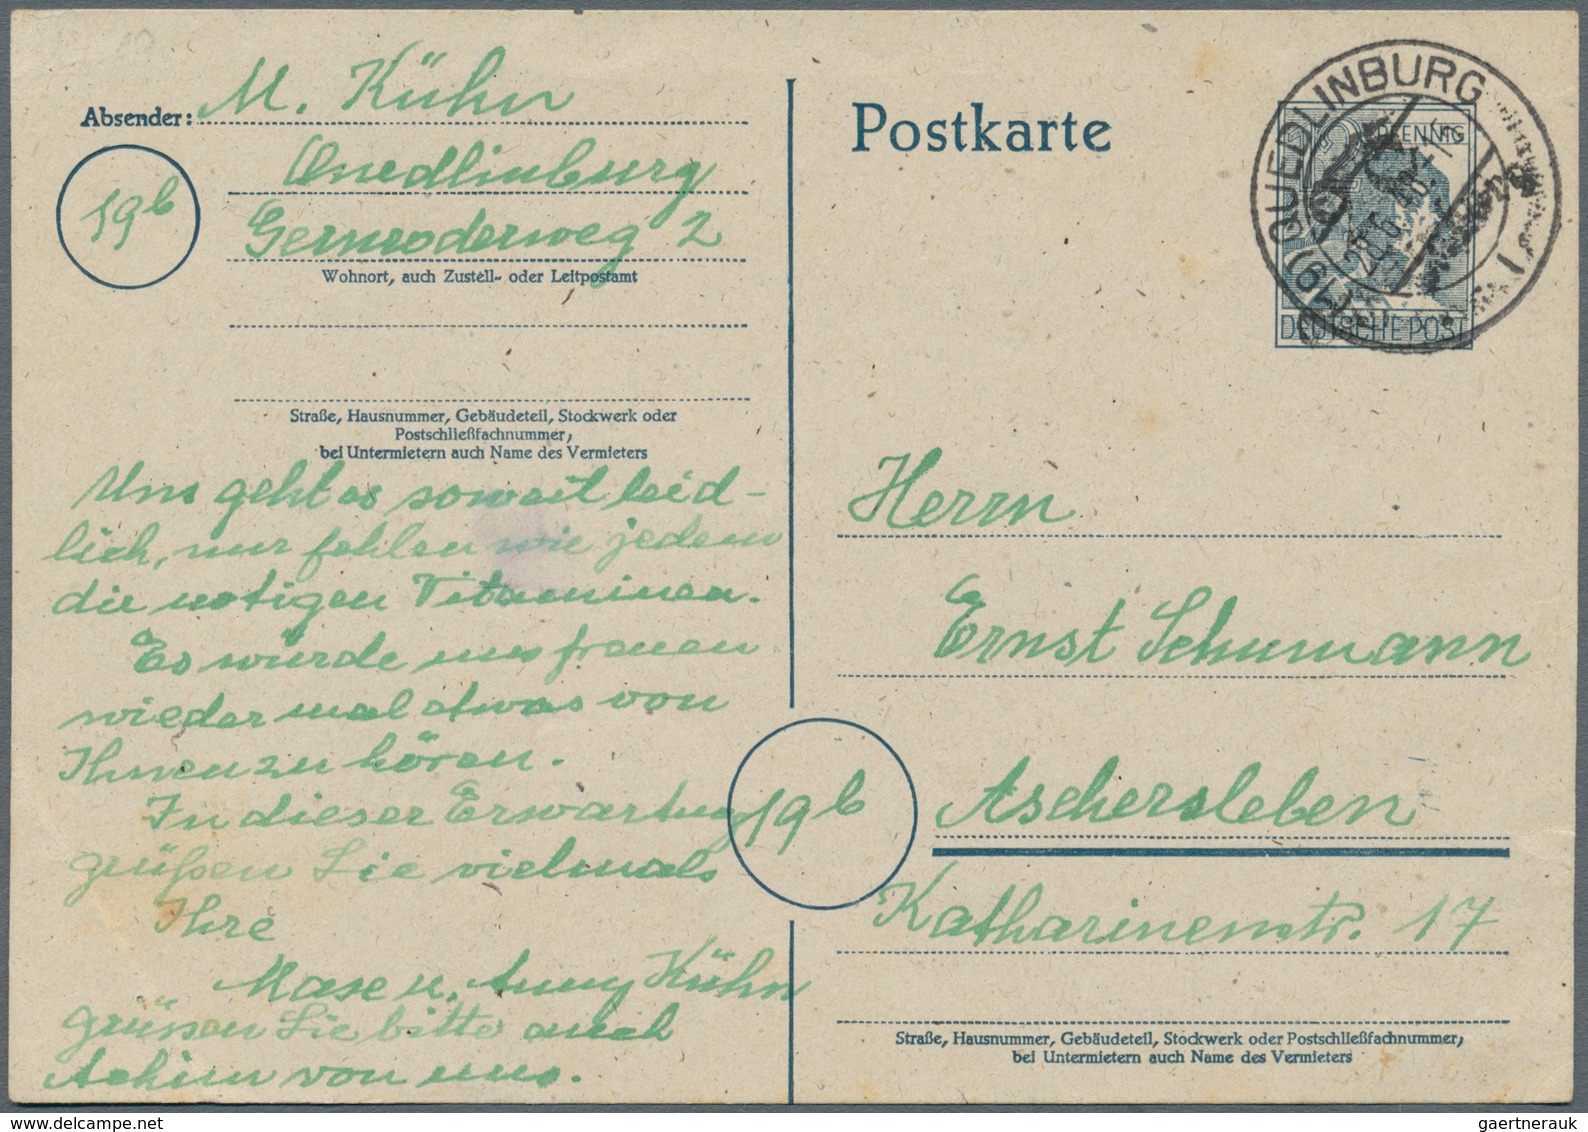 Absender: M. Kühn
Quedlinburg
Gernroderweg 2
19b
Wohnort, auch Zustell- oder Leitpostamt
Straße, Hausnummer, Gebäudeteil, Stockwerk oder
Postschließfachnummer,
bei Untermietern auch Name des Vermieters
Uns geht es soweit leid-
lich, nur fehlen wie jedem
die notigen Vitaminen.
Es würde uns freuen
wieder mal etwas von
Ihnen zu hören.
In dieser Erwartung
grüßen Sie vielmals
Ihre
u. Anny Kühn
grüssen Sie bitte auch
Achim von uns.
Postkarte
QUEDLINBURG
PFENNIG
DEUTSCHE POST
Herrn
Ernst Schumann
19b
Aschersleben
Katharinenstr. 17
Straße, Hausnummer, Gebäudeteil, Stockwerk oder Postschließfachnummer,
bei Untermietern auch Name des Vermieters
gaertnerauk